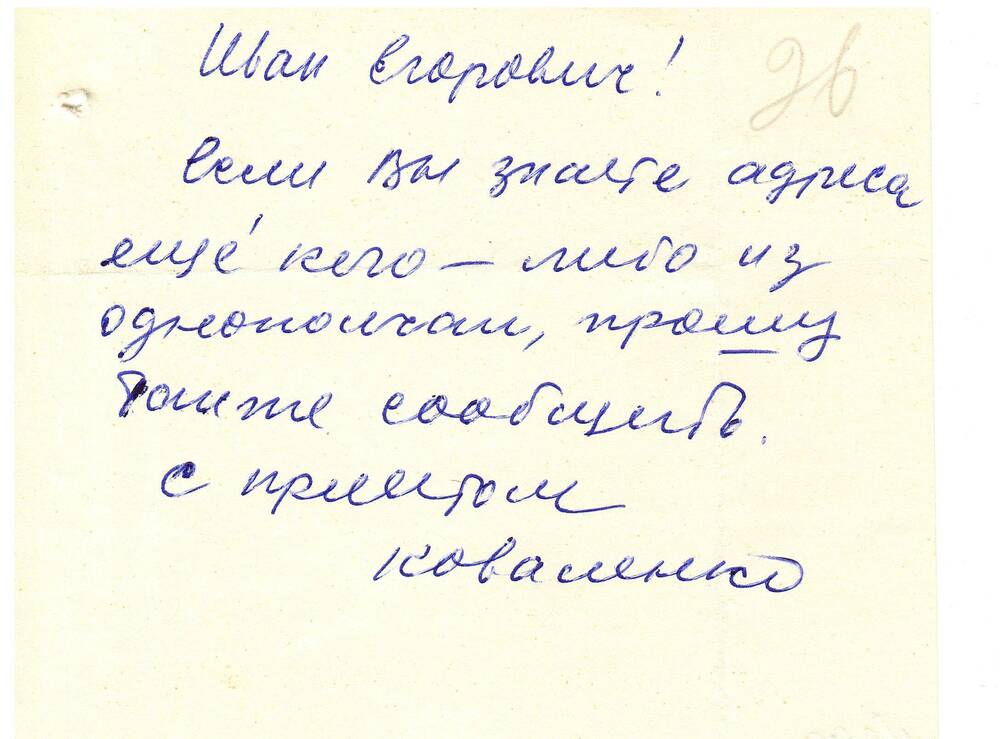 Иван Егорович!
26
Если Вы знаете адреса
ещё кого-либо из
однополчан, прошу
также сообщить.
С приветом
Коваленко